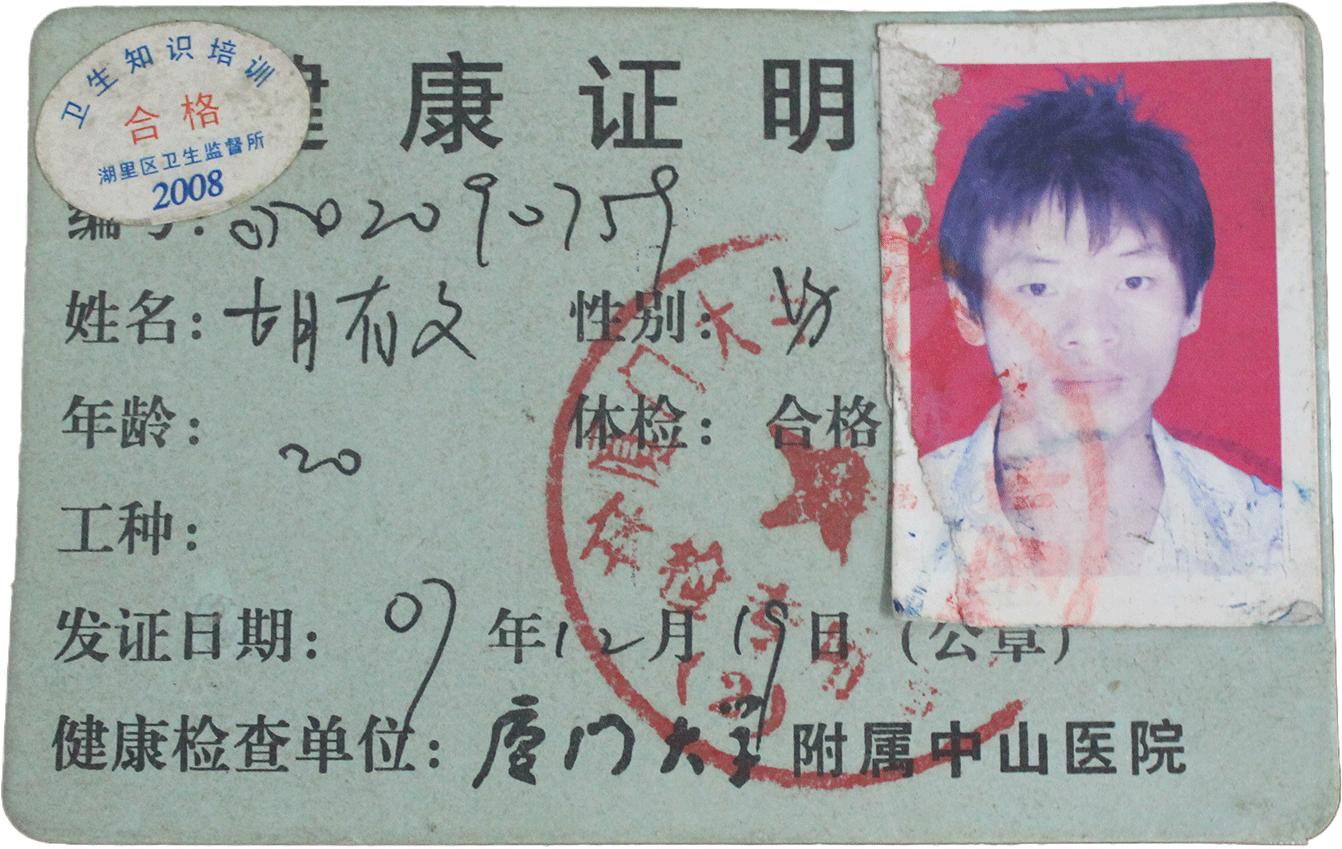 卫生知识培训
合格
湖里区卫生监督所
2008
健康证明
编号: 0502090759
姓名: 胡有文 性别: 男
年龄: 20 体检: 合格
工种:
发证日期: 07年12月19日 (公章)
健康检查单位: 厦门大学附属中山医院